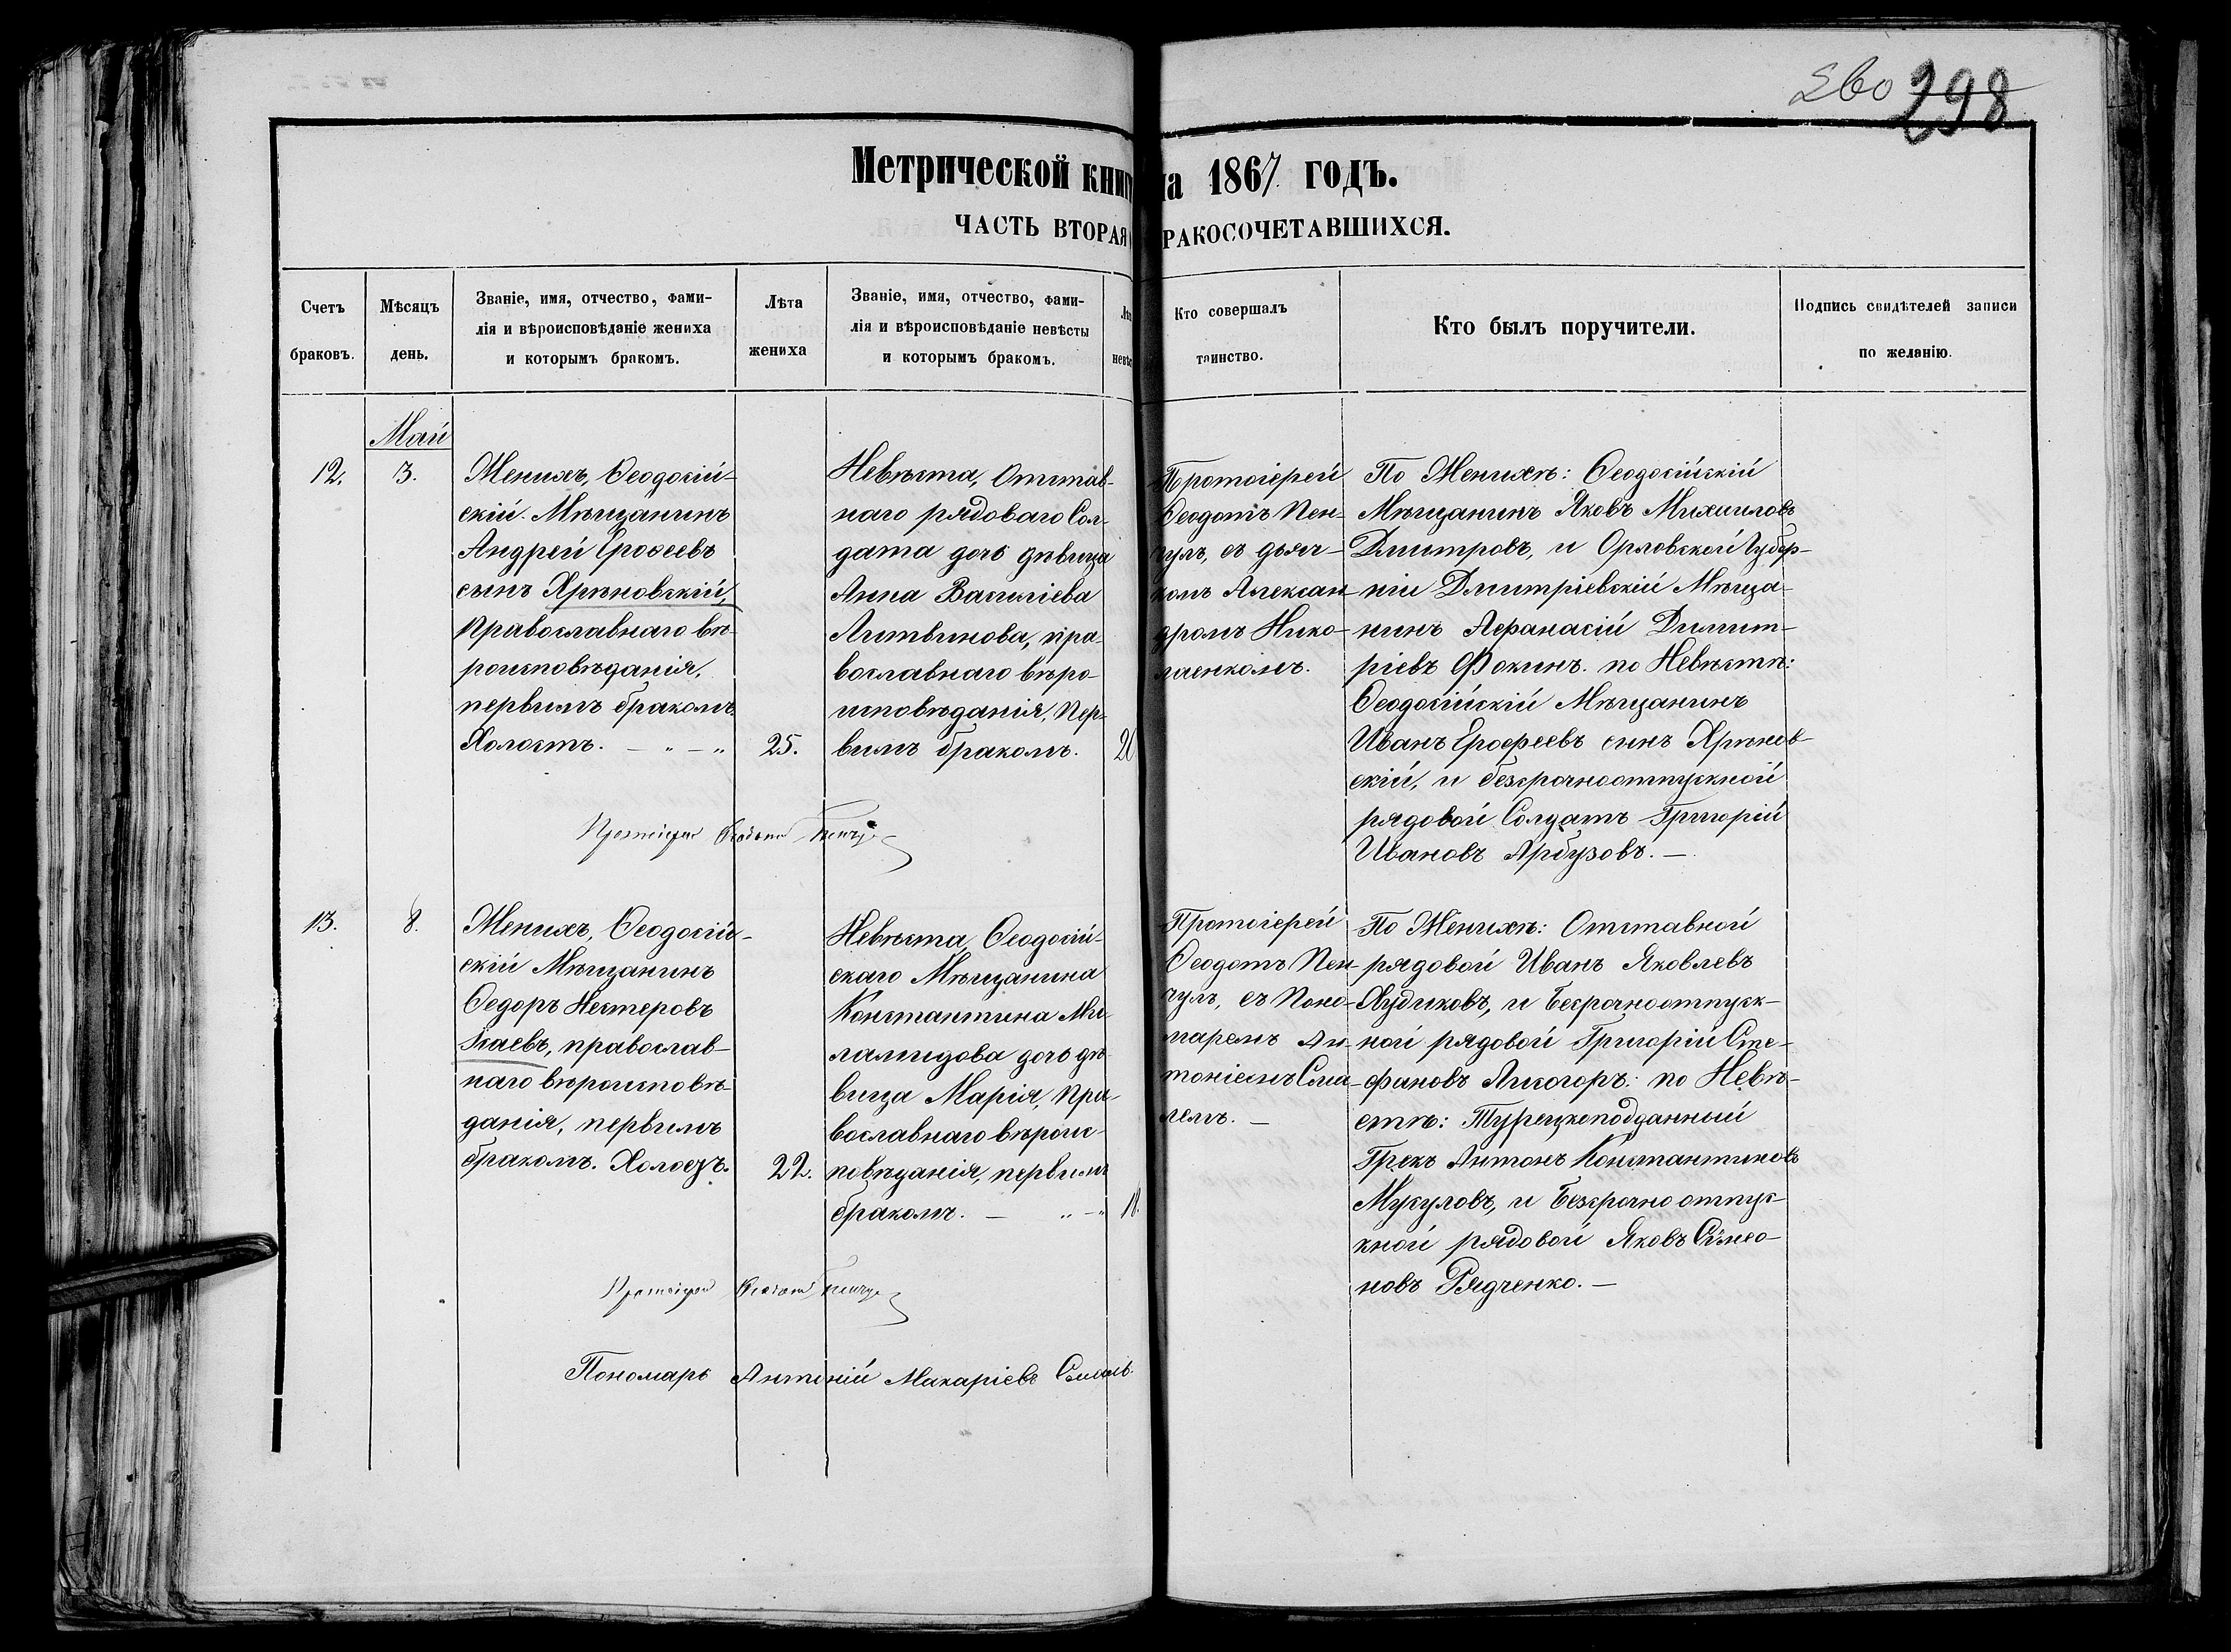 260 298
Метрической книг на 1867 годъ.
ЧАСТЬ ВТОРАЯ РАКОСОЧЕТАВШИХСЯ.
Счетъ
браковъ.
Мѣсяцъ
день.
Званіе, имя, отчество, фами-
лія и вѣроисповѣданіе жениха
и которымъ бракомъ.
Лѣта
жениха
Званіе, имя, отчество, фами-
лія и вѣроисповѣданіе невѣсты
и которымъ бракомъ.
Кто совершалъ
таинство.
Кто былъ поручители.
Подпись свидѣтелей записи
по желанію.
Май
12.
3.
Женихъ, Ѳеодосій-
скій Мѣщанинъ
Андрей Ерофеевъ
сынъ Хрѣновскій,
православнаго вѣ-
роисповѣданія,
первымъ бракомъ.
Холостъ. — „ — „
25.
Невѣста, Отстав-
наго рядоваго Сол-
дата дочь дѣвица
Анна Василіева
Литвинова, пра-
вославнаго вѣро-
исповѣданія, пер-
вымъ бракомъ.
20
Протоіерей
Ѳеодотъ Пен-
чулъ, съ дьяч-
комъ Алексан-
дромъ Нико-
лаенкомъ.
По Женихѣ: Ѳеодосійскій
Мѣщанинъ Яковъ Михаиловъ
Дмитровъ, и Орловской Губер-
ніи Дмитріевскій Мѣща-
нинъ Аѳанасій Димит-
ріевъ Фокинъ. по Невѣстѣ:
Ѳеодосійскій Мѣщанинъ
Иванъ Ерофеевъ сынъ Хрѣнов-
скій, и безсрочноотпускной
рядовой Солдатъ Григорій
Ивановъ Арбузовъ. —
Протоіерей Ѳеодотъ Пенчулъ
13.
8.
Женихъ, Ѳеодосій-
скій Мѣщанинъ
Ѳедоръ Нестеровъ
Исаевъ, православ-
наго вѣроисповѣ-
данія, первымъ
бракомъ. Холостъ.
22.
Невѣста, Ѳеодосій-
скаго Мѣщанина
Константина Ми-
лалидова дочь дѣ-
вица Марія, пра-
вославнаго вѣроис-
повѣданія, первымъ
бракомъ. — „ — „
18.
Протоіерей
Ѳеодотъ Пен-
чулъ, съ Поно-
маремъ Ан-
тоніемъ Сма-
лемъ. —
По Женихѣ: Отставной
рядовой Иванъ Яковлевъ
Худиковъ, и Безсрочноотпуск-
ной рядовой Григорій Сте-
фановъ Лисогоръ: по Невѣ-
стѣ: Турецкеподданный
Грекъ Антонъ Константиновъ
Мускуловъ, и Безсрочно отпус-
кной рядовой Яковъ Сѵмео-
новъ Рядченко. —
Протоіерей Ѳеодотъ Пенчулъ
Пономарь Антоній Макаріевъ